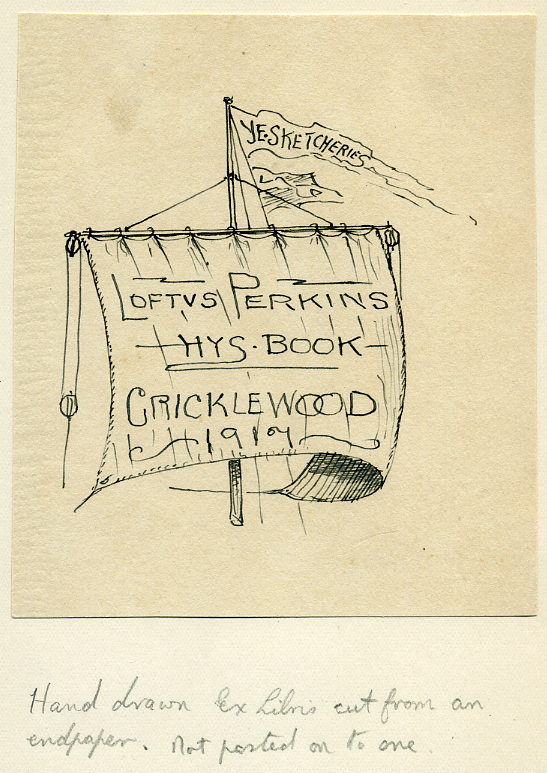 YE·SKETCHERIES
LOFTVS PERKINS
HYS·BOOK
CRICKLEWOOD
1917
Hand drawn Ex Libris cut from an
endpaper. Not pasted on to one.